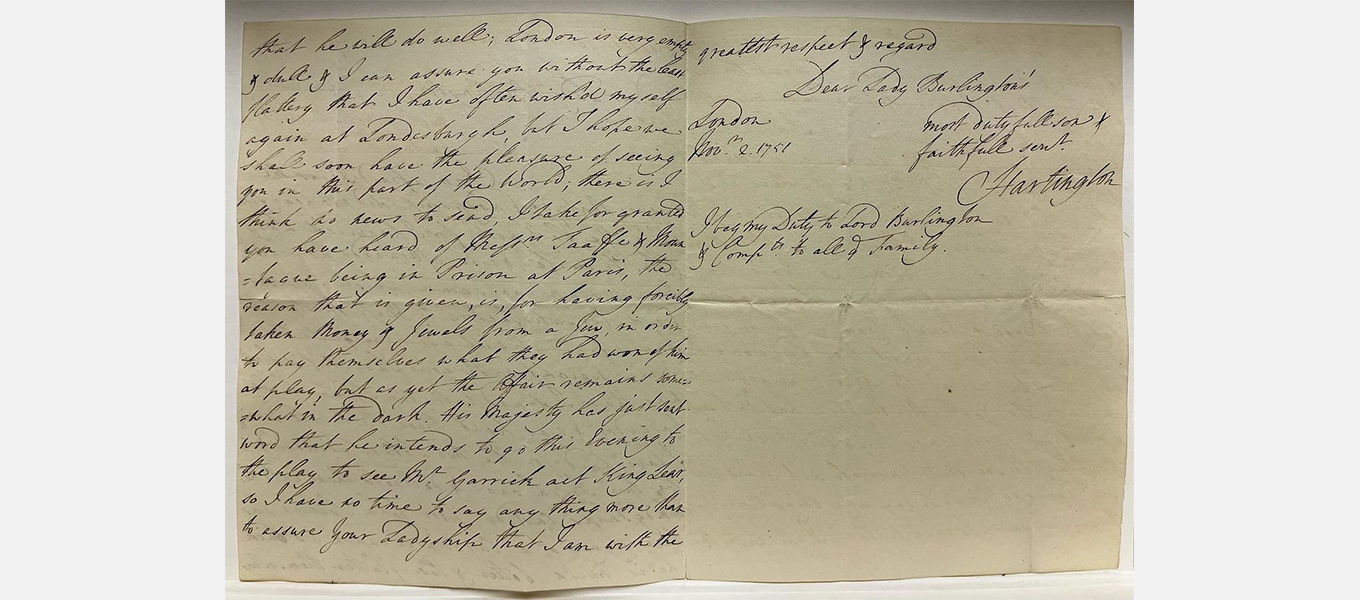 that he will do well; London is very empty
& dull & I can assure you without the least
flattery that I have often wish'd myself
again at Londesburgh, but I hope we
shall soon have the pleasure of seeing
you in this part of the World; there is I
think no news to send, I take for granted
you have heard of Messrs Taaffe & Mon
=tague being in Prison at Paris, the
reason that is given, is, for having forcibly
taken Money & Jewels from a Jew, in order
to pay themselves what they had won of him
at play, but as yet the Affair remains some=
=what in the dark. His Majesty has just sent
word that he intends to go this Evening to
the play to see Mr. Garrick act King Lear,
so I have no time to say any thing more than
to assure Your Ladyship that I am with the
greatest respect & regard
Dear Lady Burlington's
most dutyfull son &
faithfull servt
Hartington
London
Nov.r 2. 1751
I beg my Duty to Lord Burlington
& Compts to all ye Family.